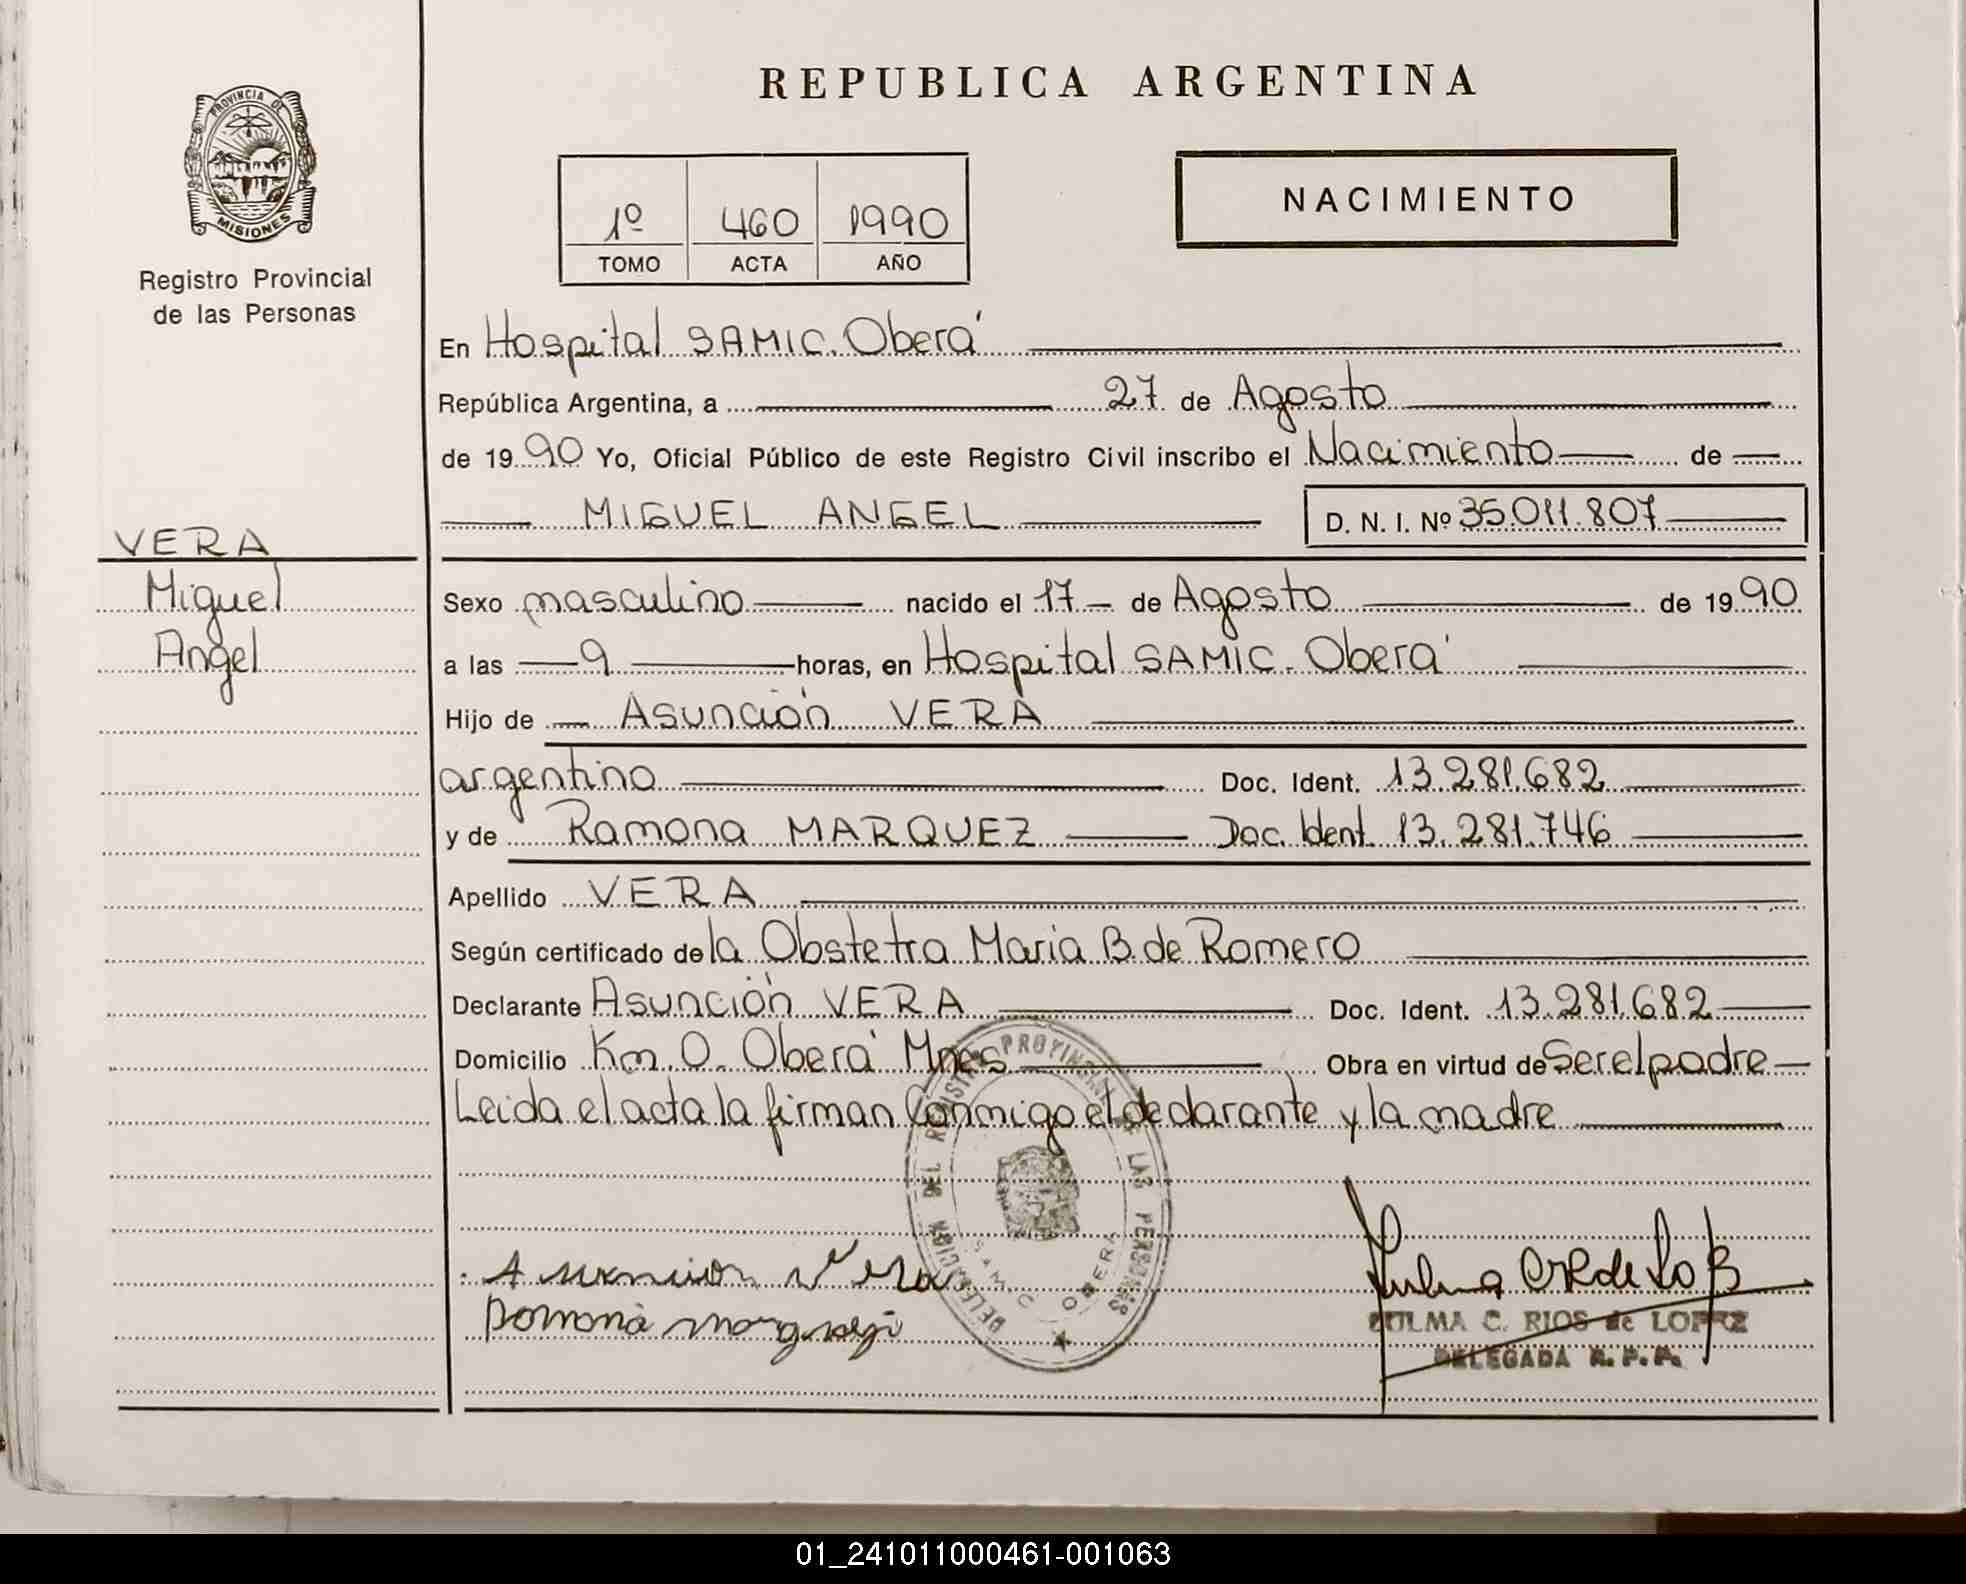 REPUBLICA ARGENTINA
PROVINCIA DE
MISIONES
Registro Provincial
de las Personas
1º 460 1990
TOMO ACTA AÑO
NACIMIENTO
En Hospital SAMIC. Oberá
República Argentina, a 27 de Agosto
de 1990 Yo, Oficial Público de este Registro Civil inscribo el Nacimiento de
MIGUEL ANGEL D. N. I. Nº 35.011.807
VERA
Miguel
Angel
Sexo masculino nacido el 17 de Agosto de 1990
a las 9 horas, en Hospital SAMIC. Oberá
Hijo de Asunción VERA
argentino Doc. Ident. 13.281.682
y de Ramona MARQUEZ Doc. Ident. 13.281.746
Apellido VERA
Según certificado de la Obstetra Maria B. de Romero
Declarante Asunción VERA Doc. Ident. 13.281.682
Domicilio Km. 0. Oberá Mnes Obra en virtud de Ser el padre
Leida el acta la firman Conmigo el declarante y la madre
DELEGACION DEL REGISTRO PROVINCIAL DE LAS PERSONAS
OBERA
Asuncion Vera
ZULMA C. RIOS de LOPEZ
DELEGADA R. P. P.
01_241011000461-001063